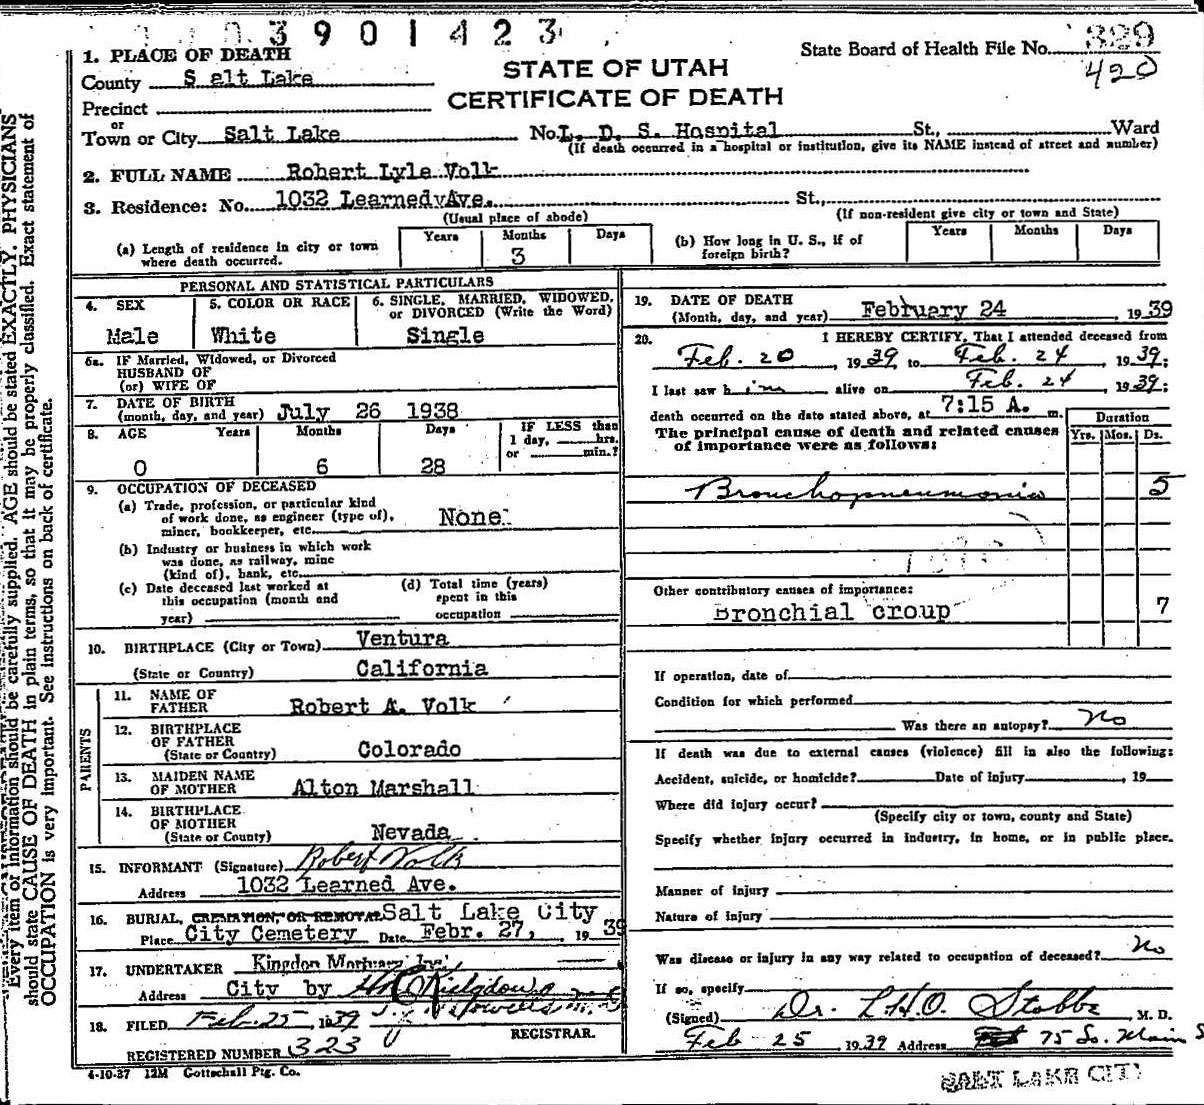 3901423
State Board of Health File No. 329
420
STATE OF UTAH
CERTIFICATE OF DEATH
1. PLACE OF DEATH
County S alt Lake
Precinct
or
Town or City Salt Lake No. L. D. S. Hospital St., Ward
(If death occurred in a hospital or institution, give its NAME instead of street and number)
2. FULL NAME Robert Lyle Volk
3. Residence: No. 1032 Learnedy Ave. St.,
(Usual place of abode) (If non-resident give city or town and State)
(a) Length of residence in city or town where death occurred. Years Months 3 Days
(b) How long in U. S., if of foreign birth? Years Months Days
PERSONAL AND STATISTICAL PARTICULARS
4. SEX Male
5. COLOR OR RACE White
6. SINGLE, MARRIED, WIDOWED, or DIVORCED (Write the Word) Single
6a. IF Married, Widowed, or Divorced
HUSBAND OF
(or) WIFE OF
7. DATE OF BIRTH
(month, day, and year) July 26 1938
8. AGE Years Months Days IF LESS than
1 day, hrs.
or min.?
0 6 28
9. OCCUPATION OF DECEASED
(a) Trade, profession, or particular kind
of work done, as engineer (type of),
miner, bookkeeper, etc. None
(b) Industry or business in which work
was done, as railway, mine
(kind of), bank, etc.
(c) Date deceased last worked at
this occupation (month and
year)
(d) Total time (years)
spent in this
occupation
10. BIRTHPLACE (City or Town) Ventura
(State or Country) California
PARENTS
11. NAME OF
FATHER Robert A. Volk
12. BIRTHPLACE
OF FATHER
(State or Country) Colorado
13. MAIDEN NAME
OF MOTHER Alton Marshall
14. BIRTHPLACE
OF MOTHER
(State or County) Nevada
15. INFORMANT (Signature) Robert Volk
Address 1032 Learned Ave.
16. BURIAL, CREMATION, OR REMOVAL Salt Lake City
Place City Cemetery Date Febr. 27, 1939
17. UNDERTAKER Kingdon Mortuary Inc.
Address City by
18. FILED Feb. 25 1939
REGISTRAR.
REGISTERED NUMBER 323
4-10-37 12M Gottschall Ptg. Co.
19. DATE OF DEATH
(Month, day, and year) February 24 1939
20. I HEREBY CERTIFY, That I attended deceased from
Feb. 20, 1939, to Feb. 24, 1939;
I last saw him alive on Feb. 24, 1939;
death occurred on the date stated above, at 7:15 A. m.
The principal cause of death and related causes
of importance were as follows:
Duration
Yrs. Mos. Ds.
Bronchopneumonia 5
Other contributory causes of importance:
Bronchial croup 7
If operation, date of
Condition for which performed
Was there an autopsy? No
If death was due to external causes (violence) fill in also the following:
Accident, suicide, or homicide? Date of injury, 19
Where did injury occur?
(Specify city or town, county and State)
Specify whether injury occurred in industry, in home, or in public place.
Manner of injury
Nature of injury
Was disease or injury in any way related to occupation of deceased? No
If so, specify
(Signed) Dr. L.H.O. Stobbe, M. D.
Feb 25 1939 Address 75 So. Main S
SALT LAKE CITY
Every item of information should be carefully supplied. AGE should be stated EXACTLY. PHYSICIANS
should state CAUSE OF DEATH in plain terms, so that it may be properly classified. Exact statement of
OCCUPATION is very important. See instructions on back of certificate.